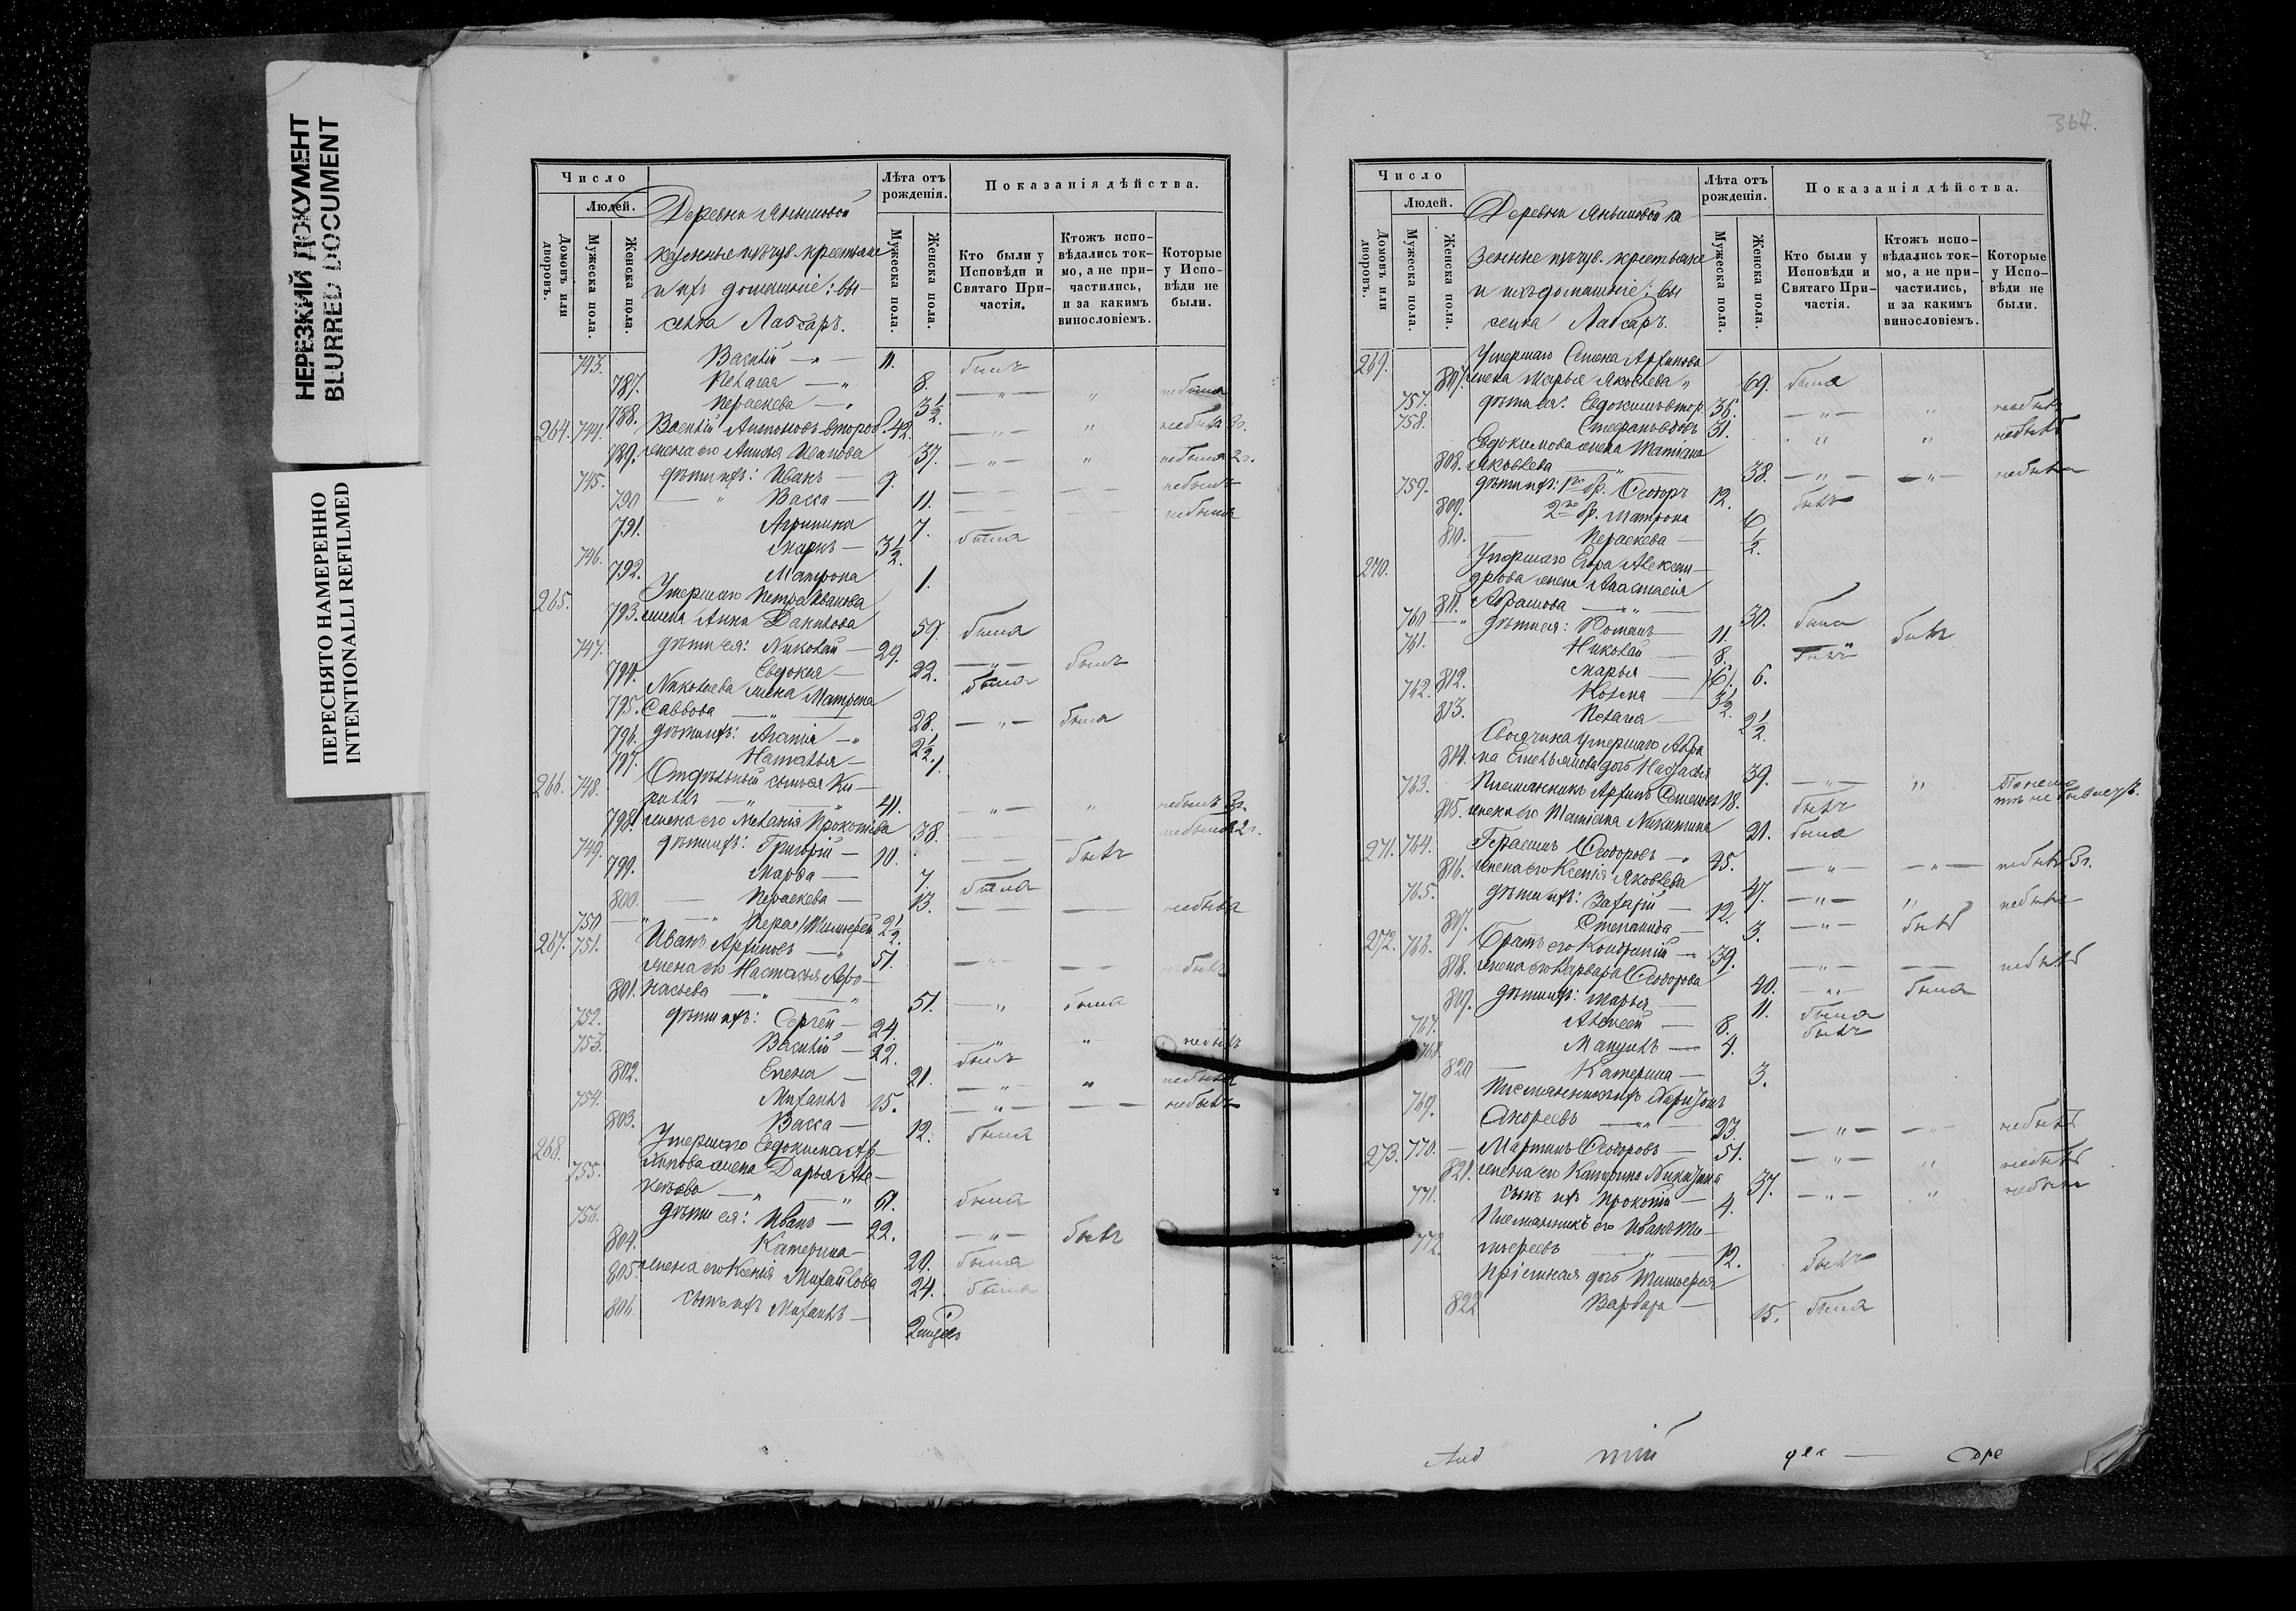 НЕРЕЗКИЙ ДОКУМЕНТ
BLURRED DOCUMENT
ПЕРЕСНЯТО НАМЕРЕННО
INTENTIONALLI REFILMED
Число
Людей.
Домовъ или дворовъ.
Мужеска пола.
Женска пола.
Деревни Янышовой
казенные изъ чув. крестьяне
и ихъ домашніе: вы-
селка Лапсаръ.
Лѣта отъ рожденія.
Мужеска пола.
Женска пола.
Показанія дѣйства.
Кто были у Исповѣди и Святаго Причастія.
Ктожъ исповѣдались токмо, а не причастились, и за какимъ винословіемъ.
Которые у Исповѣди не были.
743. Василій — " — 11. былъ
787. Пелагея — " 8. — " — " небыла
788. Пераскева — " 3 1/2.
264. 744. Василій Антоновъ второй 42. — " — " небылъ 3г.
789. жена его Анисья Иванова 37. — " — " небыла 2г.
745. дѣти ихъ: Иванъ — 9. — — небылъ
790 — " Васса — 11. — — небыла
791. Агрипина 7. была
746. Маркъ — 3 1/2.
792. Матрона 1.
265. Умершаго Петра Иванова
793. жена Анна Данилова 59. была
747. дѣти ея: Николай — 29. — " — былъ
794. Евдокея — 22. была
Николаева жена Матрена
795. Саввова — " — 28. — " — была
796. дѣти ихъ: Агапія — " 2 1/2.
797. Наталья — 1.
266. 748. Отдѣльный сынъ ея Ки-
рилъ — " — " 41. " — " небылъ 3г.
798. жена его Меланія Прокопьева 38. — — небыла 2г.
749. дѣти ихъ: Григорій — 10. — — былъ
799. Марѳа — 7. была
800. — Пераскева — 13. — — небыла
750 — " — " Тимоѳей 2 1/2.
267. 751. Иванъ Архиповъ — " 51. — " — — — небылъ
жена его Настасья Аѳо-
801. насьева — " — " 51. — " была
752. дѣти ихъ: Сергѣй — 24. — " — " небылъ
753. Василій — 22. былъ
802. Елена — 21. — " — " небыла
754. Михаилъ 15. — " — — — небылъ
803. Васса — 12. была
268. Умершаго Евдокима Ар-
755. хипова жена Дарья Але-
ксѣева — " — " 61. была
756. дѣти ея: Иванъ — 22. — " — былъ
804. Катерина — 20. была
805. жена его Ксенія Михайлова 24. была
806 сынъ ихъ Михаилъ —
367.
Число
Людей.
Домовъ или дворовъ.
Мужеска пола.
Женска пола.
Деревни Янышовой ка
зенные изъ чув. крестьяне
и ихъ домашніе: вы
селка Лапсаръ.
Лѣта отъ рожденія.
Мужеска пола.
Женска пола.
Показанія дѣйства.
Кто были у Исповѣди и Святаго Причастія.
Ктожъ исповѣдались токмо, а не причастились, и за какимъ винословіемъ.
Которые у Исповѣди не были.
269. Умершаго Семена Архипова
807. жена Марья Яковлева " 69. была
757. дѣти ея: Евдокимъ втор. 36. — " — " небылъ
758. Степанъ 31. " " небылъ
Евдокимова жена Матіана
808. Яковлева — " 38. — " — — " — небыла
759. дѣти ихъ: 1го бр. Ѳеодоръ 12. былъ
809. 2го бр. Матрона 6
810. — Пераскева — 1/2.
270. Умершаго Егора Алексан-
дрова жена Анастасія
811. Абрамова — " — 30. была
760 — " дѣти ея: Романъ — 11. былъ
761. Николай — 8. былъ
812. Марья — 6.
762. 3 1/2.
813. Пелагея — 2 1/2.
Своячина умершаго Абра
814. ма Емельянова дочь Настасья 39. — " — "
763. Племянникъ Архипъ Семеновъ 18. былъ
815. жена его Матіана Никитина 21. была
271. 764. Герасимъ Ѳеодоровъ — " 45. — " — — " — небылъ 3г.
816. жена его Ксенія Яковлева 47. — " — " небыла
765. дѣти ихъ: Захарій — 12. — " — былъ
817. Степанида — 3.
272. 766. Братъ его Кондратій — " 39. — " — — — небылъ
818. жена его Варвара Ѳеодорова 40. — " — была
809. дѣти ихъ: Марья — 11. была
767. Алексѣй — 8. былъ
768. Мануилъ — 4.
820 — Катерина — 3.
Племянникъ ихъ Ларіонъ
769. Андреевъ — " — 23. — " — — " — небылъ
273. 770. — Мартинъ Ѳеодоровъ — 51. — " — " небылъ
821. жена его Катерина Никитина 37. — " — " небыла
771. сынъ ихъ Прокопій — 4.
Племянникъ его Иванъ Ти-
772. моѳеевъ — " — 12. былъ
Пріемная дочь Тимоѳея
822 Варвара — 15. была